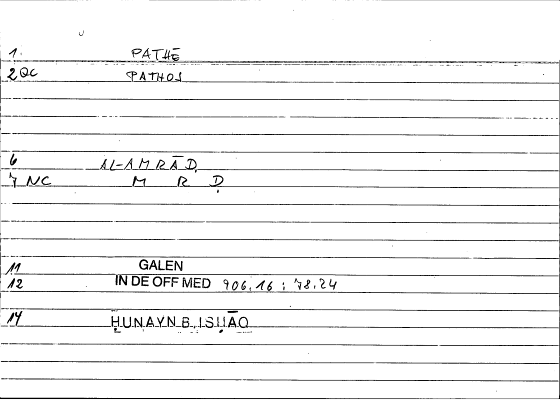 1. PATHĒ
2 QC PATHOS
6 AL-AMRĀḌ
7 NC M R Ḍ
11 GALEN
12 IN DE OFF MED 906.16 : 78.24
14 ḤUNAYN B. ISḤĀQ